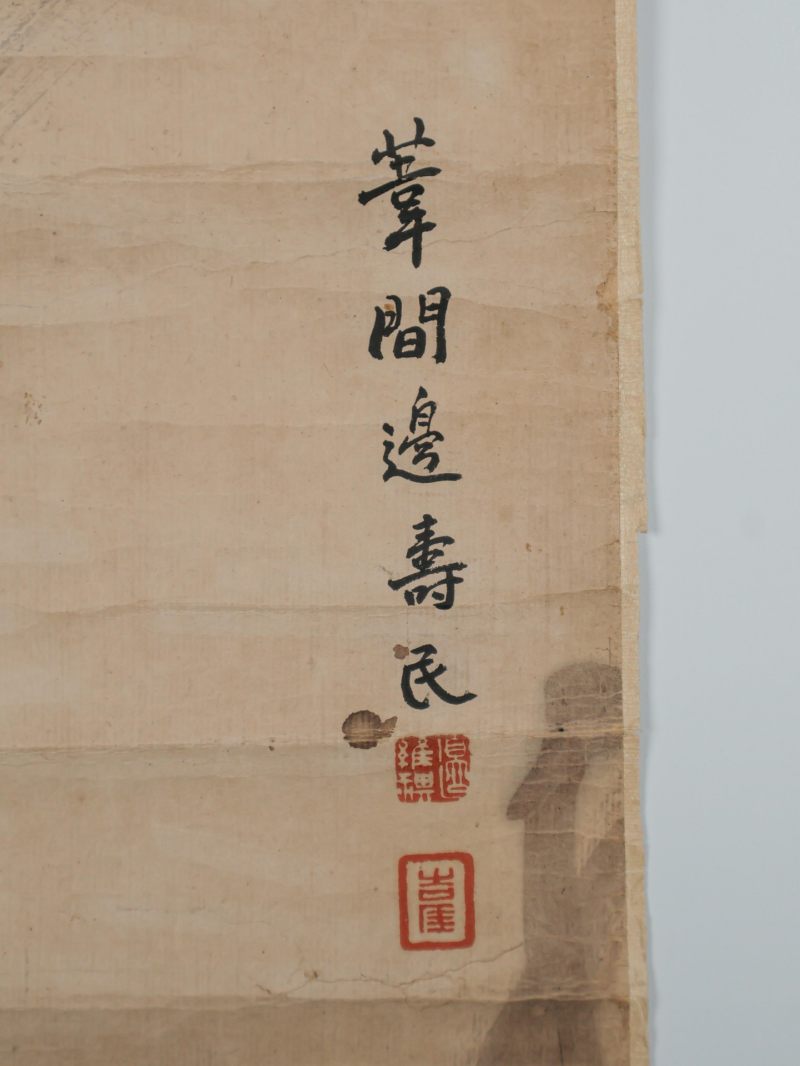 葦間邊壽民